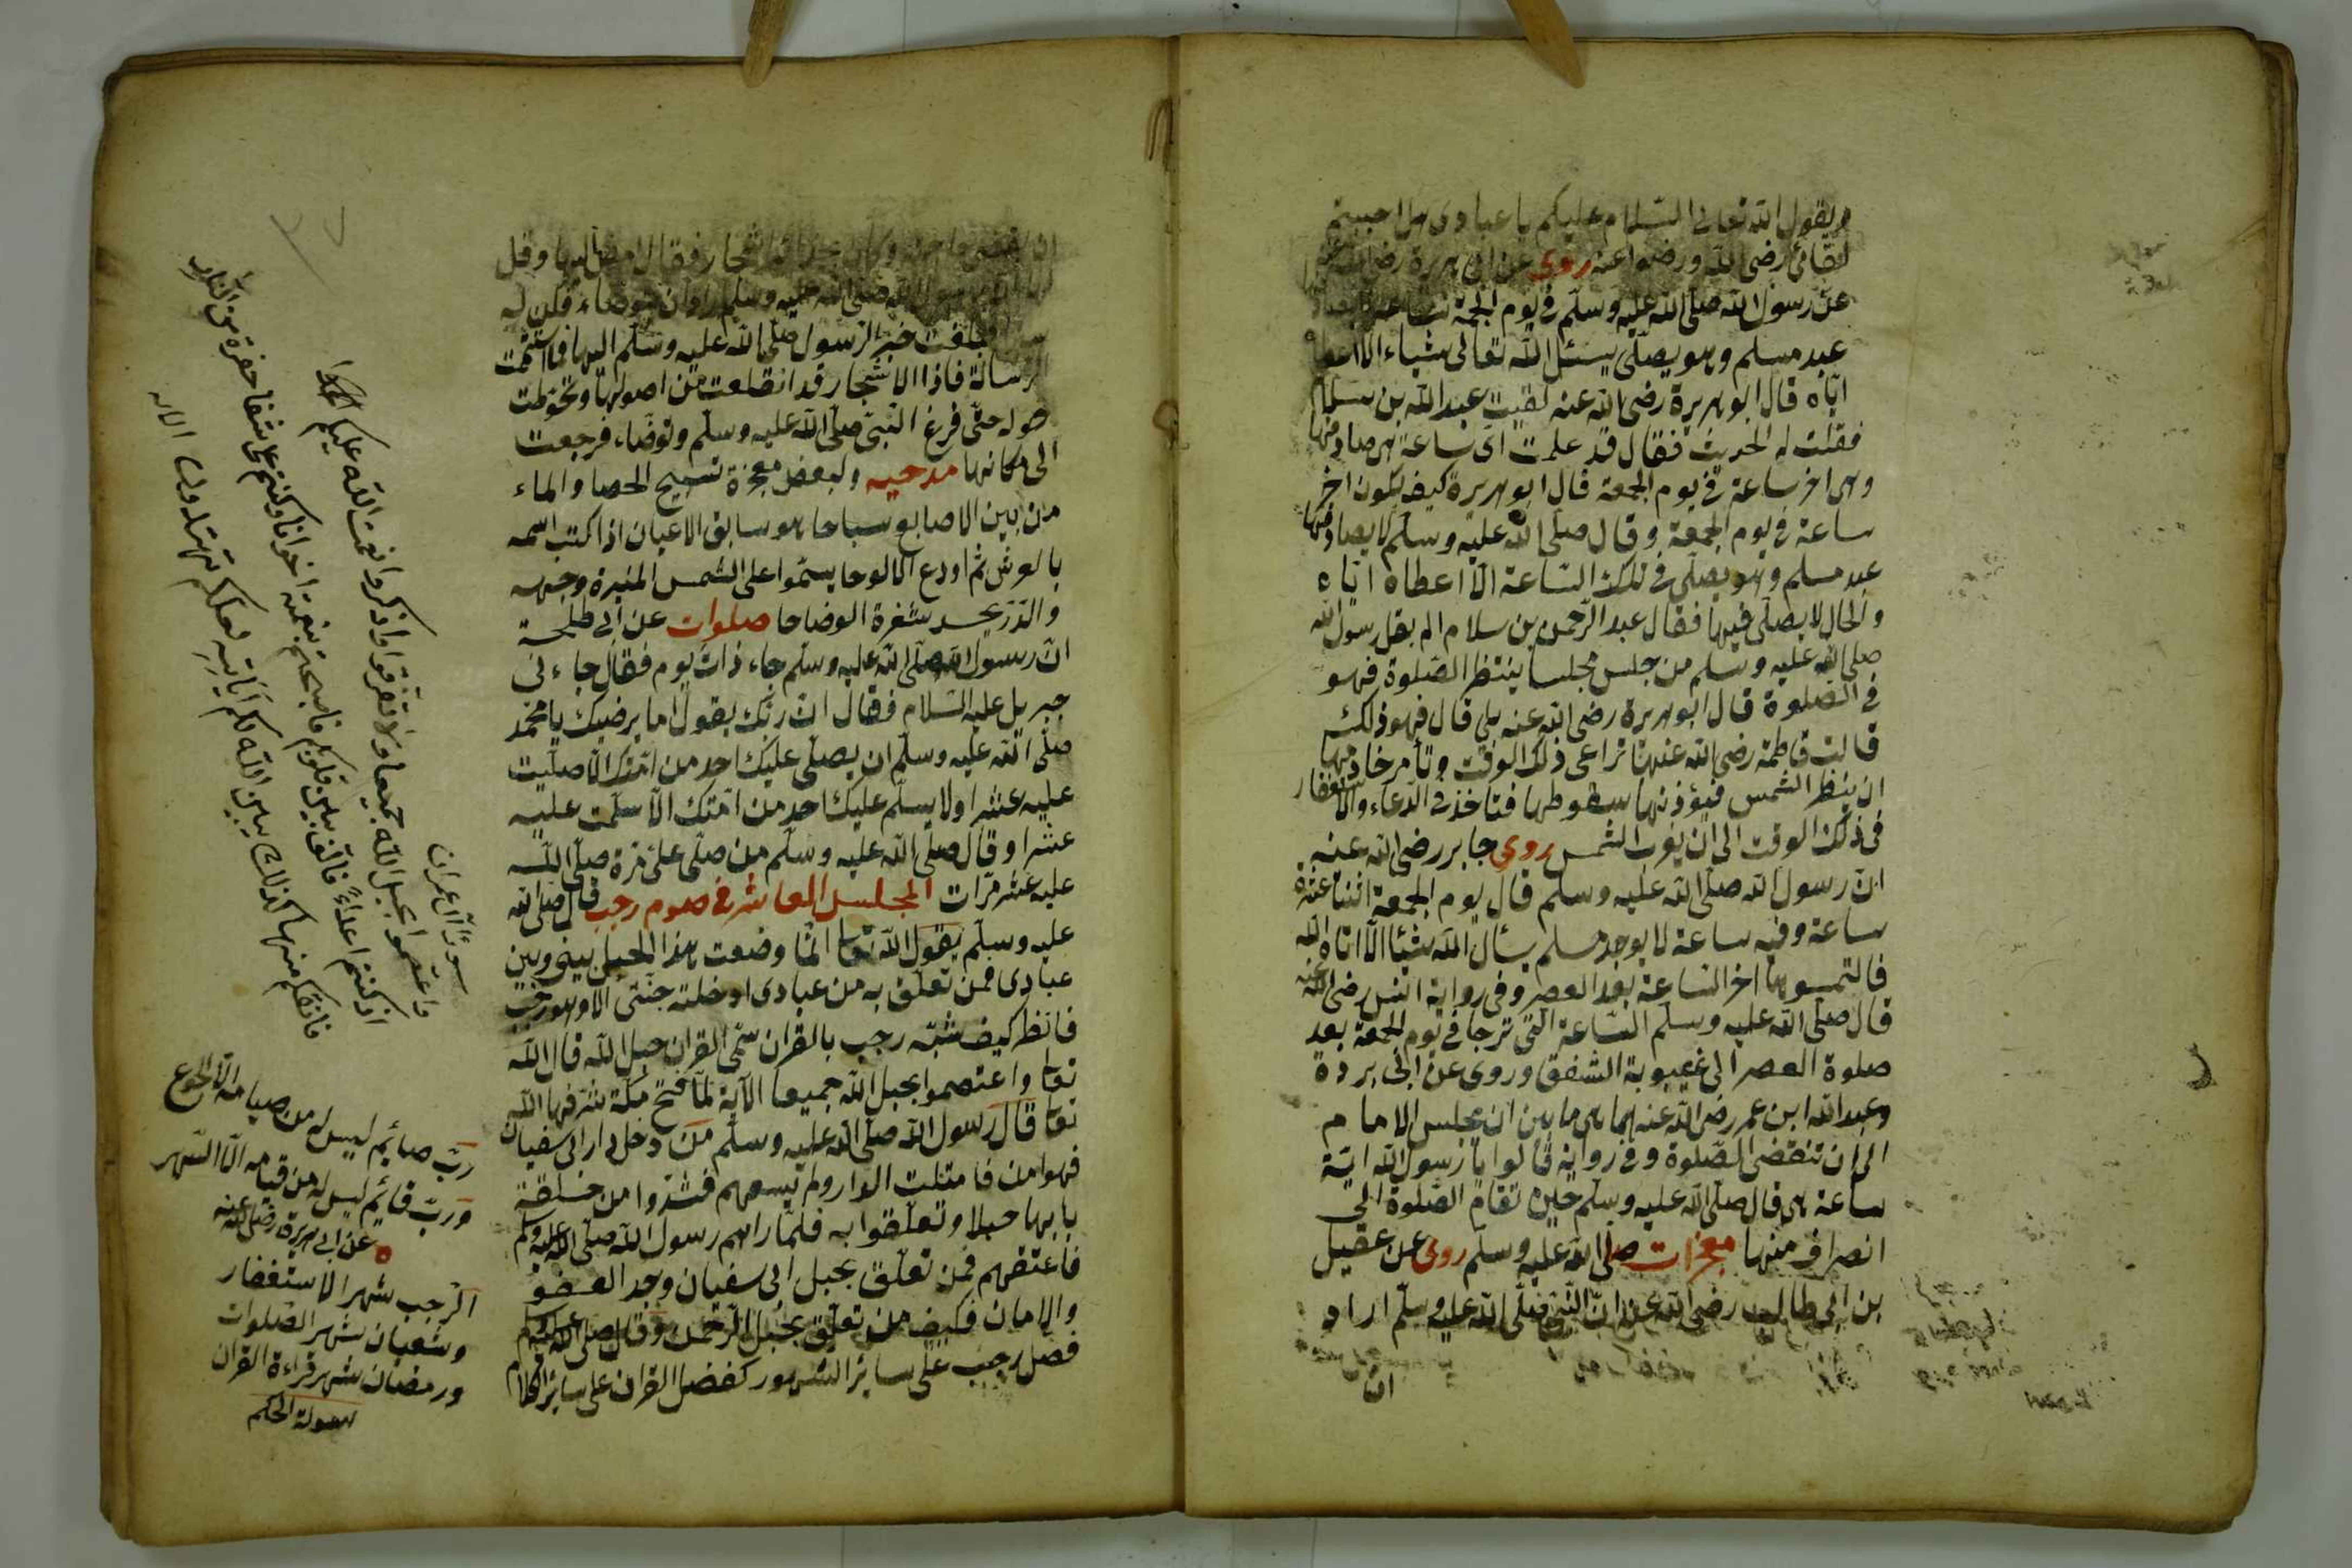 ويقول الله تعالى السلام عليكم يا عبادى هل احببتم
لقائى رضى الله ورضوا عنه روى عن ابى هريرة رضى الله عنه
عن رسول الله صلى الله عليه وسلم فى يوم الجمعة ساعة
عبد مسلم وهو يصلى يسئل الله تعالى شياء الا اعطاه
اياه قال ابو هريرة رضى الله عنه لقيت عبد الله بن سلام
فقلت له الحديث فقال قد علمت اى ساعة هى
وهى اخر ساعة فى يوم الجمعة قال ابو هريرة كيف يكون اخر
ساعة فى يوم الجمعة وقال صلى الله عليه وسلم لا يصادفها
عبد مسلم وهو يصلى فى تلك الساعة الا اعطاه اياه
والحال لا يصلى فيها فقال عبد الرحمن بن سلام الم يقل رسول الله
صلى الله عليه وسلم من جلس مجلسا ينتظر الصلوة فهو
فى الصلوة قال ابو هريرة رضى الله عنه بلى قال فهو ذلك
قالت فاطمة رضى الله عنها تراعى ذلك الوقت وتأمر خادمها
ان ينظر الشمس فيؤذنها بسقوطها فتاخذ فى الدعاء والاستغفار
فى ذلك الوقت الى ان يغرب الشمس روى جابر رضى الله عنه
ان رسول الله صلى الله عليه وسلم قال يوم الجمعة اثنتا عشرة
ساعة وفيه ساعة لا يوجد مسلم يسأل الله شيئا الا اتاه الله
فالتمسوها اخر الساعة بعد العصر وفى رواية انس رضى الله عنه
قال صلى الله عليه وسلم الساعة التى ترجا فى يوم الجمعة بعد
صلوة العصر الى غيبوبة الشفق وروى عن ابى بردة
وعبد الله ابن عمر رضى الله عنهما هى ما بين ان يجلس الامام
الى ان تنقضى الصلوة وفى رواية قالوا يا رسول الله اية
ساعة هى قال صلى الله عليه وسلم حين تقام الصلوة الى
انصراف منها معجزات صلى الله عليه وسلم روى عن عقيل
بن ابى طالب رضى الله عنه ان النبى صلى الله عليه وسلم اراد
ان
ان اشجار فقال امض اليها وقل
صلى الله عليه وسلم اراد ان يتوضاء فكن له
فبلغت خبر الرسول صلى الله عليه وسلم اليها فما استتمت
الرسالة فاذا الاشجار قد انقلعت من اصولها وتحوطت
حوله حتى فرغ النبى صلى الله عليه وسلم وتوضاء فرجعت
الى مكانها مدحيه ولبعض معجزة تسبيح الحصا والماء
من بين الاصابع سباحا هو سابق الاعيان اذا كتب اسمه
بالعرش ثم اودع الالوحا يسموا على الشمس المنيرة وجهه
والدر يحسد ثغرة الوضاحا صلوات عن ابى طلحة
ان رسول الله صلى الله عليه وسلم جاء ذات يوم فقال جاءنى
جبريل عليه السلام فقال ان ربك يقول اما يرضيك يا محمد
صلى الله عليه وسلم ان يصلى عليك احد من امتك الا صليت
عليه عشرا ولا يسلم عليك احد من امتك الا سلمت عليه
عشرا وقال صلى الله عليه وسلم من صلى على مرة صلى الله
عليه عشر مرات المجلس العاشر فى صوم رجب قال صلى الله
عليه وسلم يقول الله تعا انما وضعت هذا الحبل بينى وبين
عبادى فمن تعلق به من عبادى ادخلته جنتى الا وهو رجب
فانظر كيف شبه رجب بالقران سمى القران حبل الله قال الله
تعا واعتصموا بحبل الله جميعا الآية لما فتح مكة شرفها الله
تعا قال رسول الله صلى الله عليه وسلم من دخل دار ابى سفيان
فهو امن فامتلت الدار ولم يسعهم فشدوا من حلقة
بابها حبلا وتعلقوا به فلما راهم رسول الله صلى الله عليه وسلم
فاعتقهم فمن تعلق بحبل ابى سفيان وجد العفو
والامان فكيف من تعلق بحبل الرحمن وقال صلى الله عليه وسلم
فضل رجب على سائر الشهور كفضل القران على سائر الكلام
سورة آل عمران
واعتصموا بحبل الله جميعا ولا تفرقوا واذكروا نعمت الله عليكم
اذ كنتم اعداء فالف بين قلوبكم فاصبحتم بنعمته اخوانا وكنتم على شفا حفرة من النار
فانقذكم منها كذلك يبين الله لكم آياته لعلكم تهتدون الآية
رب صائم ليس له من صيامه الا الجوع
ورب قائم ليس له من قيامه الا السهر
عن ابى هريرة رضى الله عنه
الرجب شهر الاستغفار
وشعبان شهر الصلوات
ورمضان شهر قراءة القران